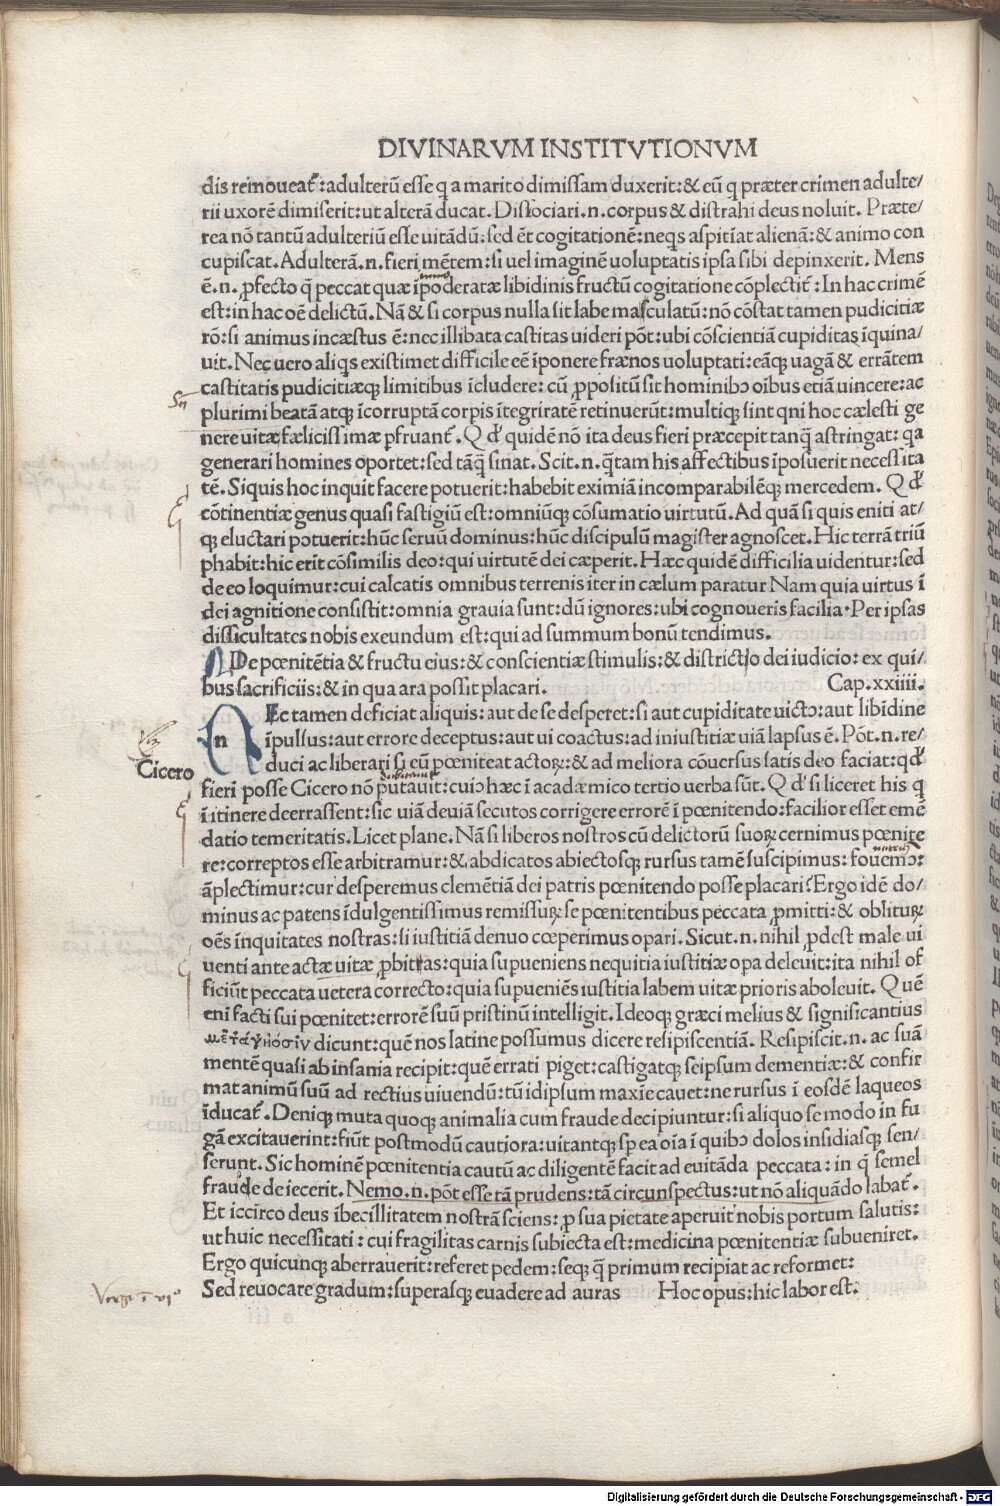 DIVINARVM INSTITVTIONVM
dis remoueat᷑:adulterū esse q a marito dimissam duxerit:& eū q præter crimen adulte/
rii uxorē dimiserit:ut alterā ducat. Dissociari.n.corpus & distrahi deus noluit. Præte/
rea nō tantū adulteriū esse uitādū:sed ēt cogitationē:neqs aspitīat alienā:& animo con
cupiscat. Adulterā.n.fieri mētem:si uel imaginē uoluptatis ipsa sibi depinxerit. Mens
ē.n. ꝓfecto q̄ peccat quæ īpoderatæ libidinis fructū cogitatione cōplectit᷑: In hac crimē
est:in hac oē delictū. Nā & si corpus nulla sit labe masculatū:nō cōstat tamen pudicitiæ
rō:si animus incæstus ē:nec illibata castitas uideri pōt:ubi cōscientiā cupiditas īquina/
uit. Nec uero aliqs existimet difficile eē īponere frænos uoluptati:eāqꝫ uagā & errātem
castitatis pudicitiæqꝫ limitibus īcludere: cū ꝓpositū sit hominibꝰ oībus etiā uincere:ac
plurimi beatā atqꝫ īcorruptā corpis ītegriratē retinuerūt:multiqꝫ sint qni hoc cælesti ge
nere uitæ fælicissimæ pfruant᷑. Q d' quidē nō ita deus fieri præcepit tanq̄ astringat: qa
generari homines oportet:sed tāq̄ sinat. Scit.n.q̄tam his affectibus īposuerit necessita
tē. Siquis hoc inquit facere potuerit:habebit eximiā incomparabilēqꝫ mercedem. Q d'
cōtinentiæ genus quasi fastigiū est:omniūqꝫ cōsumatio uirtutū. Ad quā si quis eniti at/
qꝫ eluctari potuerit:hūc seruū dominus:hūc discipulū magister agnoscet. Hic terrā triū
phabit:hic erit cōsimilis deo:qui uirtutē dei cæperit. Hæc quidē difficilia uidentur:sed
de eo loquimur:cui calcatis omnibus terrenis iter in cælum paratur Nam quia uirtus ī
dei agnitione consistit:omnia grauia sunt:dū ignores:ubi cognoueris facilia. Per ipsas
difficultates nobis exeundum est:qui ad summum bonū tendimus.
De pœnitētia & fructu eius:& conscientiæ stimulis:& districtio dei iudicio: ex qui/
bus sacrificiis:& in qua ara possit placari. Cap.xxiiii.
n Ec tamen deficiat aliquis:aut de se desperet:si aut cupiditate uictꝰ:aut libidine
īpulsus:aut errore deceptus:aut ui coactus:ad iniustitiæ uiā lapsus ē. Pōt.n.re/
Cicero duci ac liberari si eū pœniteat actoꝝ:& ad meliora cōuersus satis deo faciat:qd'
fieri posse Cicero nō putauit:cuiꝰ hæc ī acadæmico tertio uerba sūt. Q d' si liceret his q
ī itinere deerrassent:sic uiā deuiā secutos corrigere errorē ī pœnitendo:facilior esset emē
datio temeritatis. Licet plane. Nā si liberos nostros cū delictorū suoꝝ cernimus pœnite
re:correptos esse arbitramur:& abdicatos abiectosqꝫ rursus tamē suscipimus: fouemꝰ:
āplectimur:cur desperemus clemētiā dei patris pœnitendo posse placari? Ergo idē do/
minus ac patens īdulgentissimus remissuꝝ se pœnitentibus peccata ꝓmitti:& oblituꝝ
oēs īnquitates nostras:si iustitiā denuo cœperimus opari. Sicut.n.nihil ꝓdest male ui
uenti ante actæ uitæ ꝓbitas:quia supueniens nequitia iustitiæ opa deleuit:ita nihil of
ficiūt peccata uetera correcto:quia supueniēs iustitia labem uitæ prioris aboleuit. Q uē
enī facti sui pœnitet:errorē suū pristinū intelligit. Ideoqꝫ græci melius & significantius
dicunt:quē nos latine possumus dicere resipiscentiā. Resipiscit.n. ac suā
mentē quasi ab insania recipit:quē errati piget:castigatqꝫ seipsum dementiæ:& confir
mat animū suū ad rectius uiuendū:tū idipsum maxīe cauet:ne rursus ī eosdē laqueos
īducat᷑. Deniqꝫ muta quoqꝫ animalia cum fraude decipiuntur:si aliquo se modo in fu
gā excitauerint:fiūt postmodū cautiora:uitantqꝫ sp ea oīa ī quibꝰ dolos insidiasqꝫ sen/
serunt. Sic hominē pœnitentia cautū ac diligentē facit ad euitāda peccata: in q̄ semel
fraude deiecerit. Nemo.n.pōt esse tā prudens:tā circunspectus:ut nō aliquādo labat᷑.
Et iccirco deus ībecillitatem nostrā sciens: ꝓ sua pietate aperuit nobis portum salutis:
ut huic necessitati : cui fragilitas carnis subiecta est:medicina pœnitentiæ subueniret.
Ergo quicunqꝫ aberrauerit:referet pedem:seqꝫ q̄ primum recipiat ac reformet:
Sed reuocare gradum:superasqꝫ euadere ad auras Hoc opus:hic labor est.
Digitalisierung gefördert durch die Deutsche Forschungsgemeinschaft - DFG